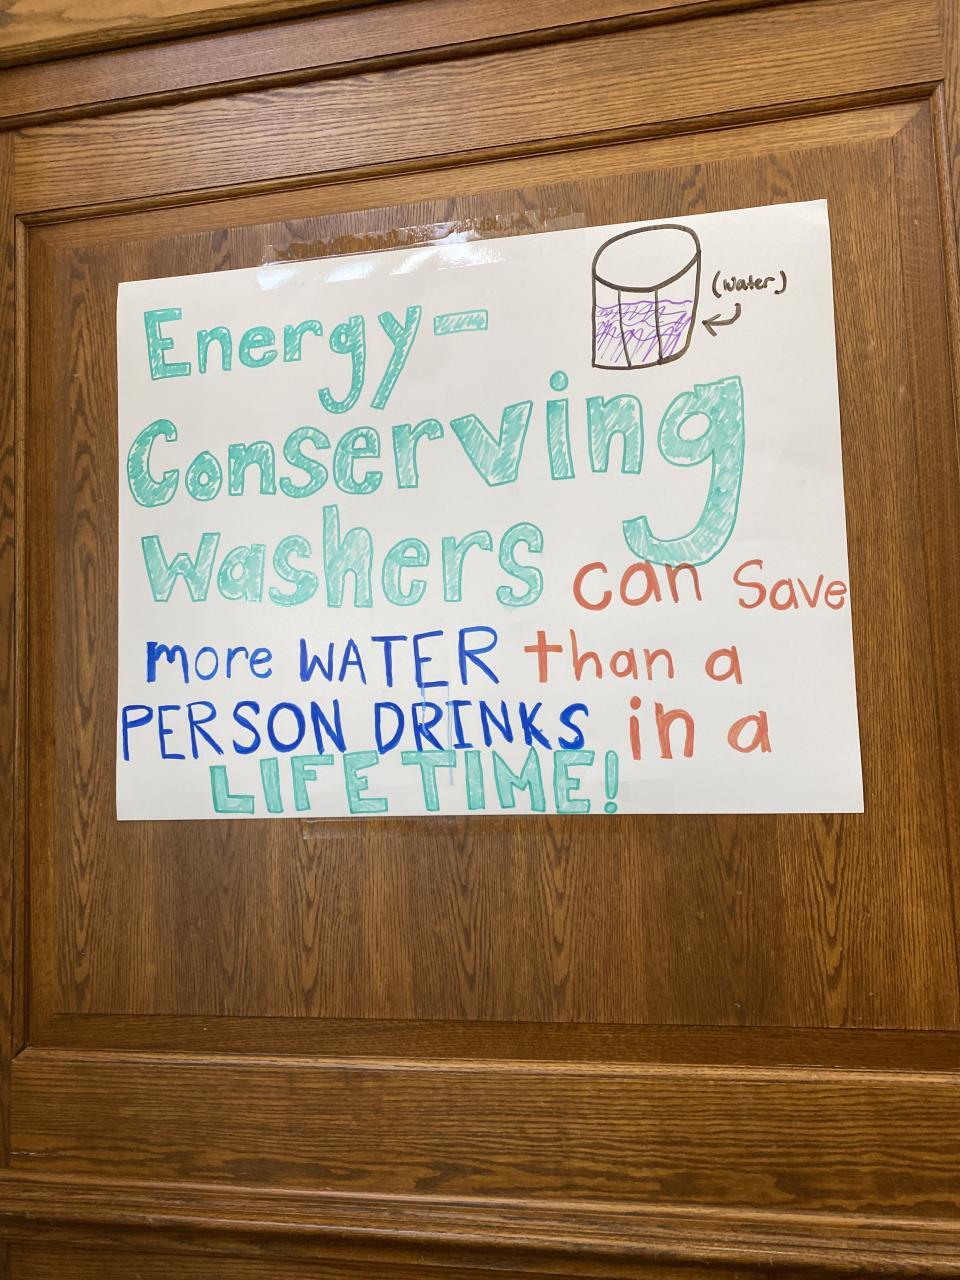 Energy-
(water)
Conserving
Washers can save
more WATER than a
PERSON DRINKS in a
LIFE TIME!